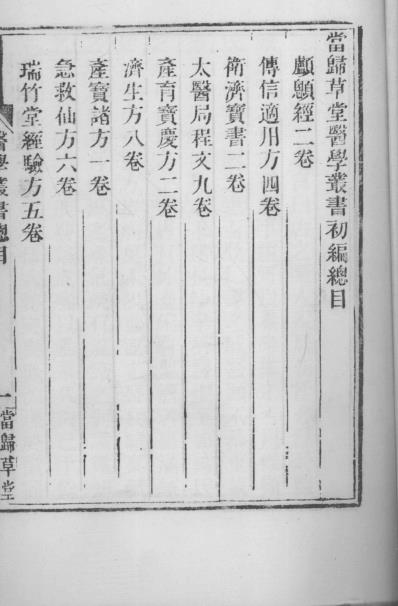 當歸草堂醫學叢書初編總目
顱顖經二卷
傳信適用方四卷
衛濟寶書二卷
太醫局程文九卷
產育寶慶方二卷
濟生方八卷
產寶諸方一卷
急救仙方六卷
瑞竹堂經驗方五卷
醫學叢書總目
一
當歸草堂